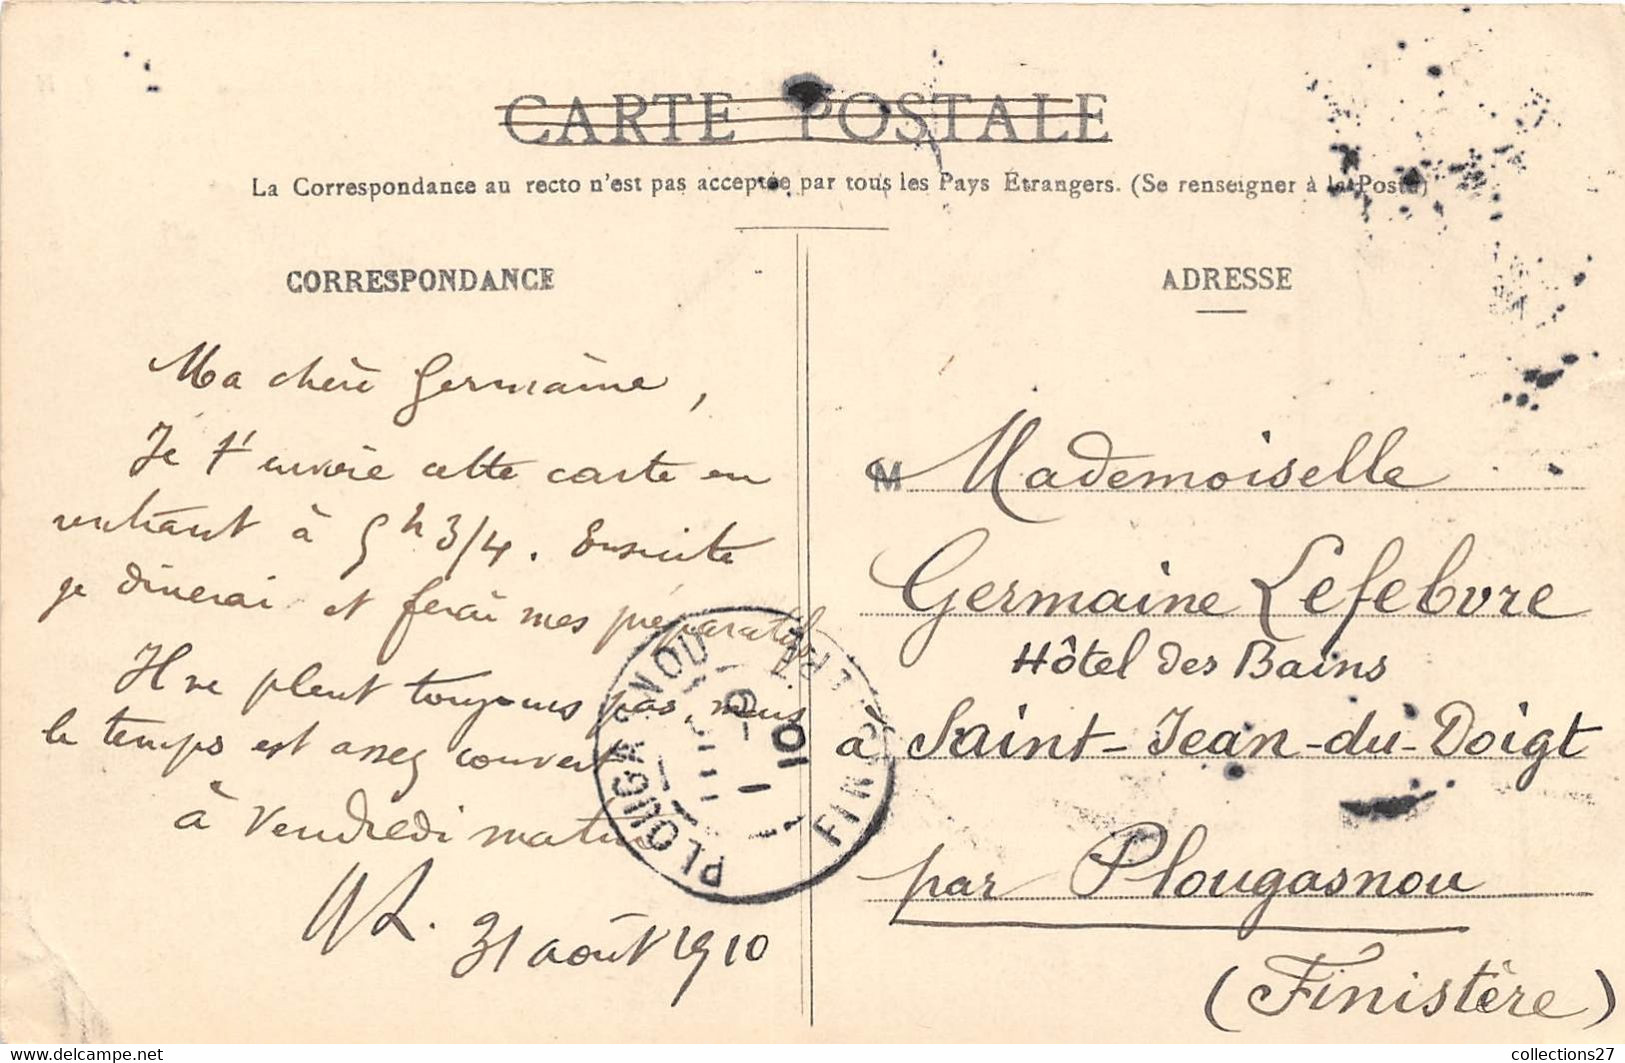 CARTE POSTALE
La Correspondance au recto n'est pas acceptée par tous les Pays Étrangers. (Se renseigner à la Poste)
CORRESPONDANCE
Ma chère Germaine,
Je t'envoie cette carte en
rentrant à 5h 3/4. Ensuite
je dînerai et ferai mes préparatifs
Il ne pleut toujours pas, mais
le temps est assez couvert
à Vendredi matin
31 août 1910
PLOUGASNOU
FINISTERE
1
-9
10
ADRESSE
M Mademoiselle
Germaine Lefebvre
Hôtel des Bains
à Saint-Jean-du-Doigt
par Plougasnou
(Finistère)
collections27